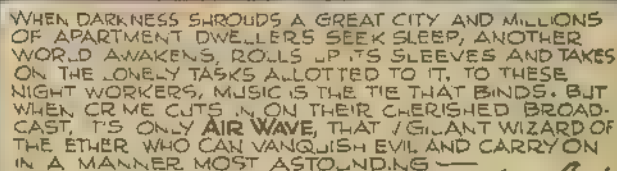 WHEN DARKNESS SHROUDS A GREAT CITY AND MILLIONS
OF APARTMENT DWELLERS SEEK SLEEP, ANOTHER
WORLD AWAKENS, ROLLS UP ITS SLEEVES AND TAKES
ON THE LONELY TASKS ALLOTTED TO IT. TO THESE
NIGHT WORKERS, MUSIC IS THE TIE THAT BINDS. BUT
WHEN CRIME CUTS IN ON THEIR CHERISHED BROAD-
CAST, IT'S ONLY AIR WAVE, THAT VIGILANT WIZARD OF
THE ETHER WHO CAN VANQUISH EVIL AND CARRY ON
IN A MANNER MOST ASTOUNDING —